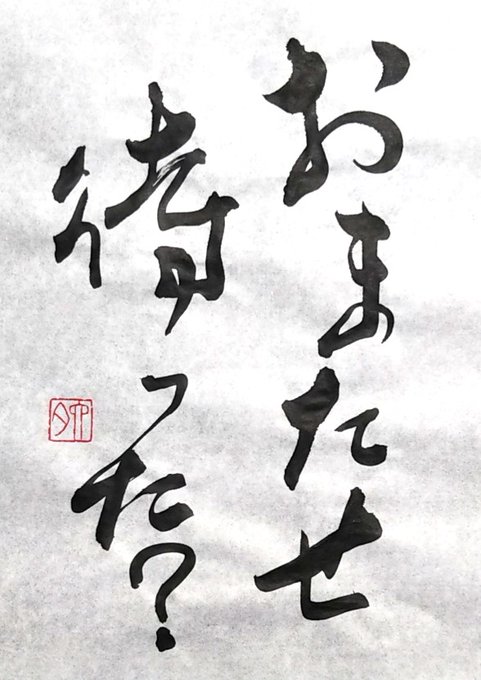 おまたせ
待った?